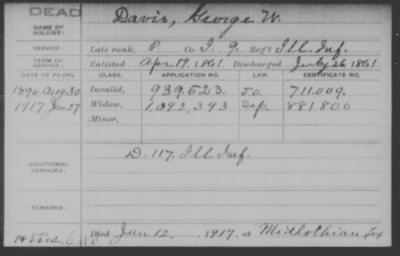 DEAD
NAME OF SOLDIER: Davis, George W.
SERVICE: Late rank, P. Co. I, 9 Reg't Ill. Inf.
TERM OF SERVICE: Enlisted Apr 19, 1861 Discharged July 26 1861
DATE OF FILING. CLASS. APPLICATION NO. LAW. CERTIFICATE NO.
1890 Aug 30 Invalid, 939,523 Jo. 711,009.
1917 Jan 27 Widow, 1,092,393 881,800
Minor,
D. 117. Ill Inf.
ADDITIONAL SERVICES:
REMARKS:
Died Jan 12, 1917, at Midlothian Tex